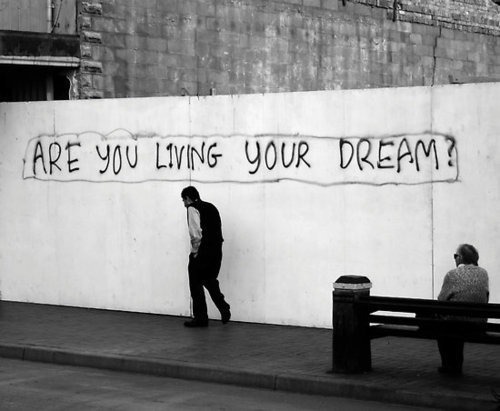 ARE YOU LIVING YOUR DREAM?